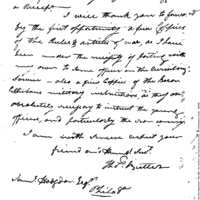 a Receipt
I will thank you to forward
by the first opportunity a few Copies
of the Rules & articles of war, as I have
been under the necessity of parting with
my own to some officer on the
Service - also a few Copies of the Baron
military instructions, as they are
absolutely necessary to instruct the young
officers, and particularly the
I am with sincere respect your
friend and
Tho. Butler
Saml Hodgdon Esqr.
Philada